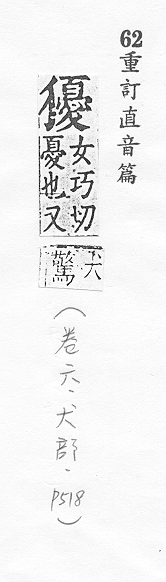 62重訂直音篇
獶女巧切
憂也又
犬
驚
(卷六、犬部、P518)